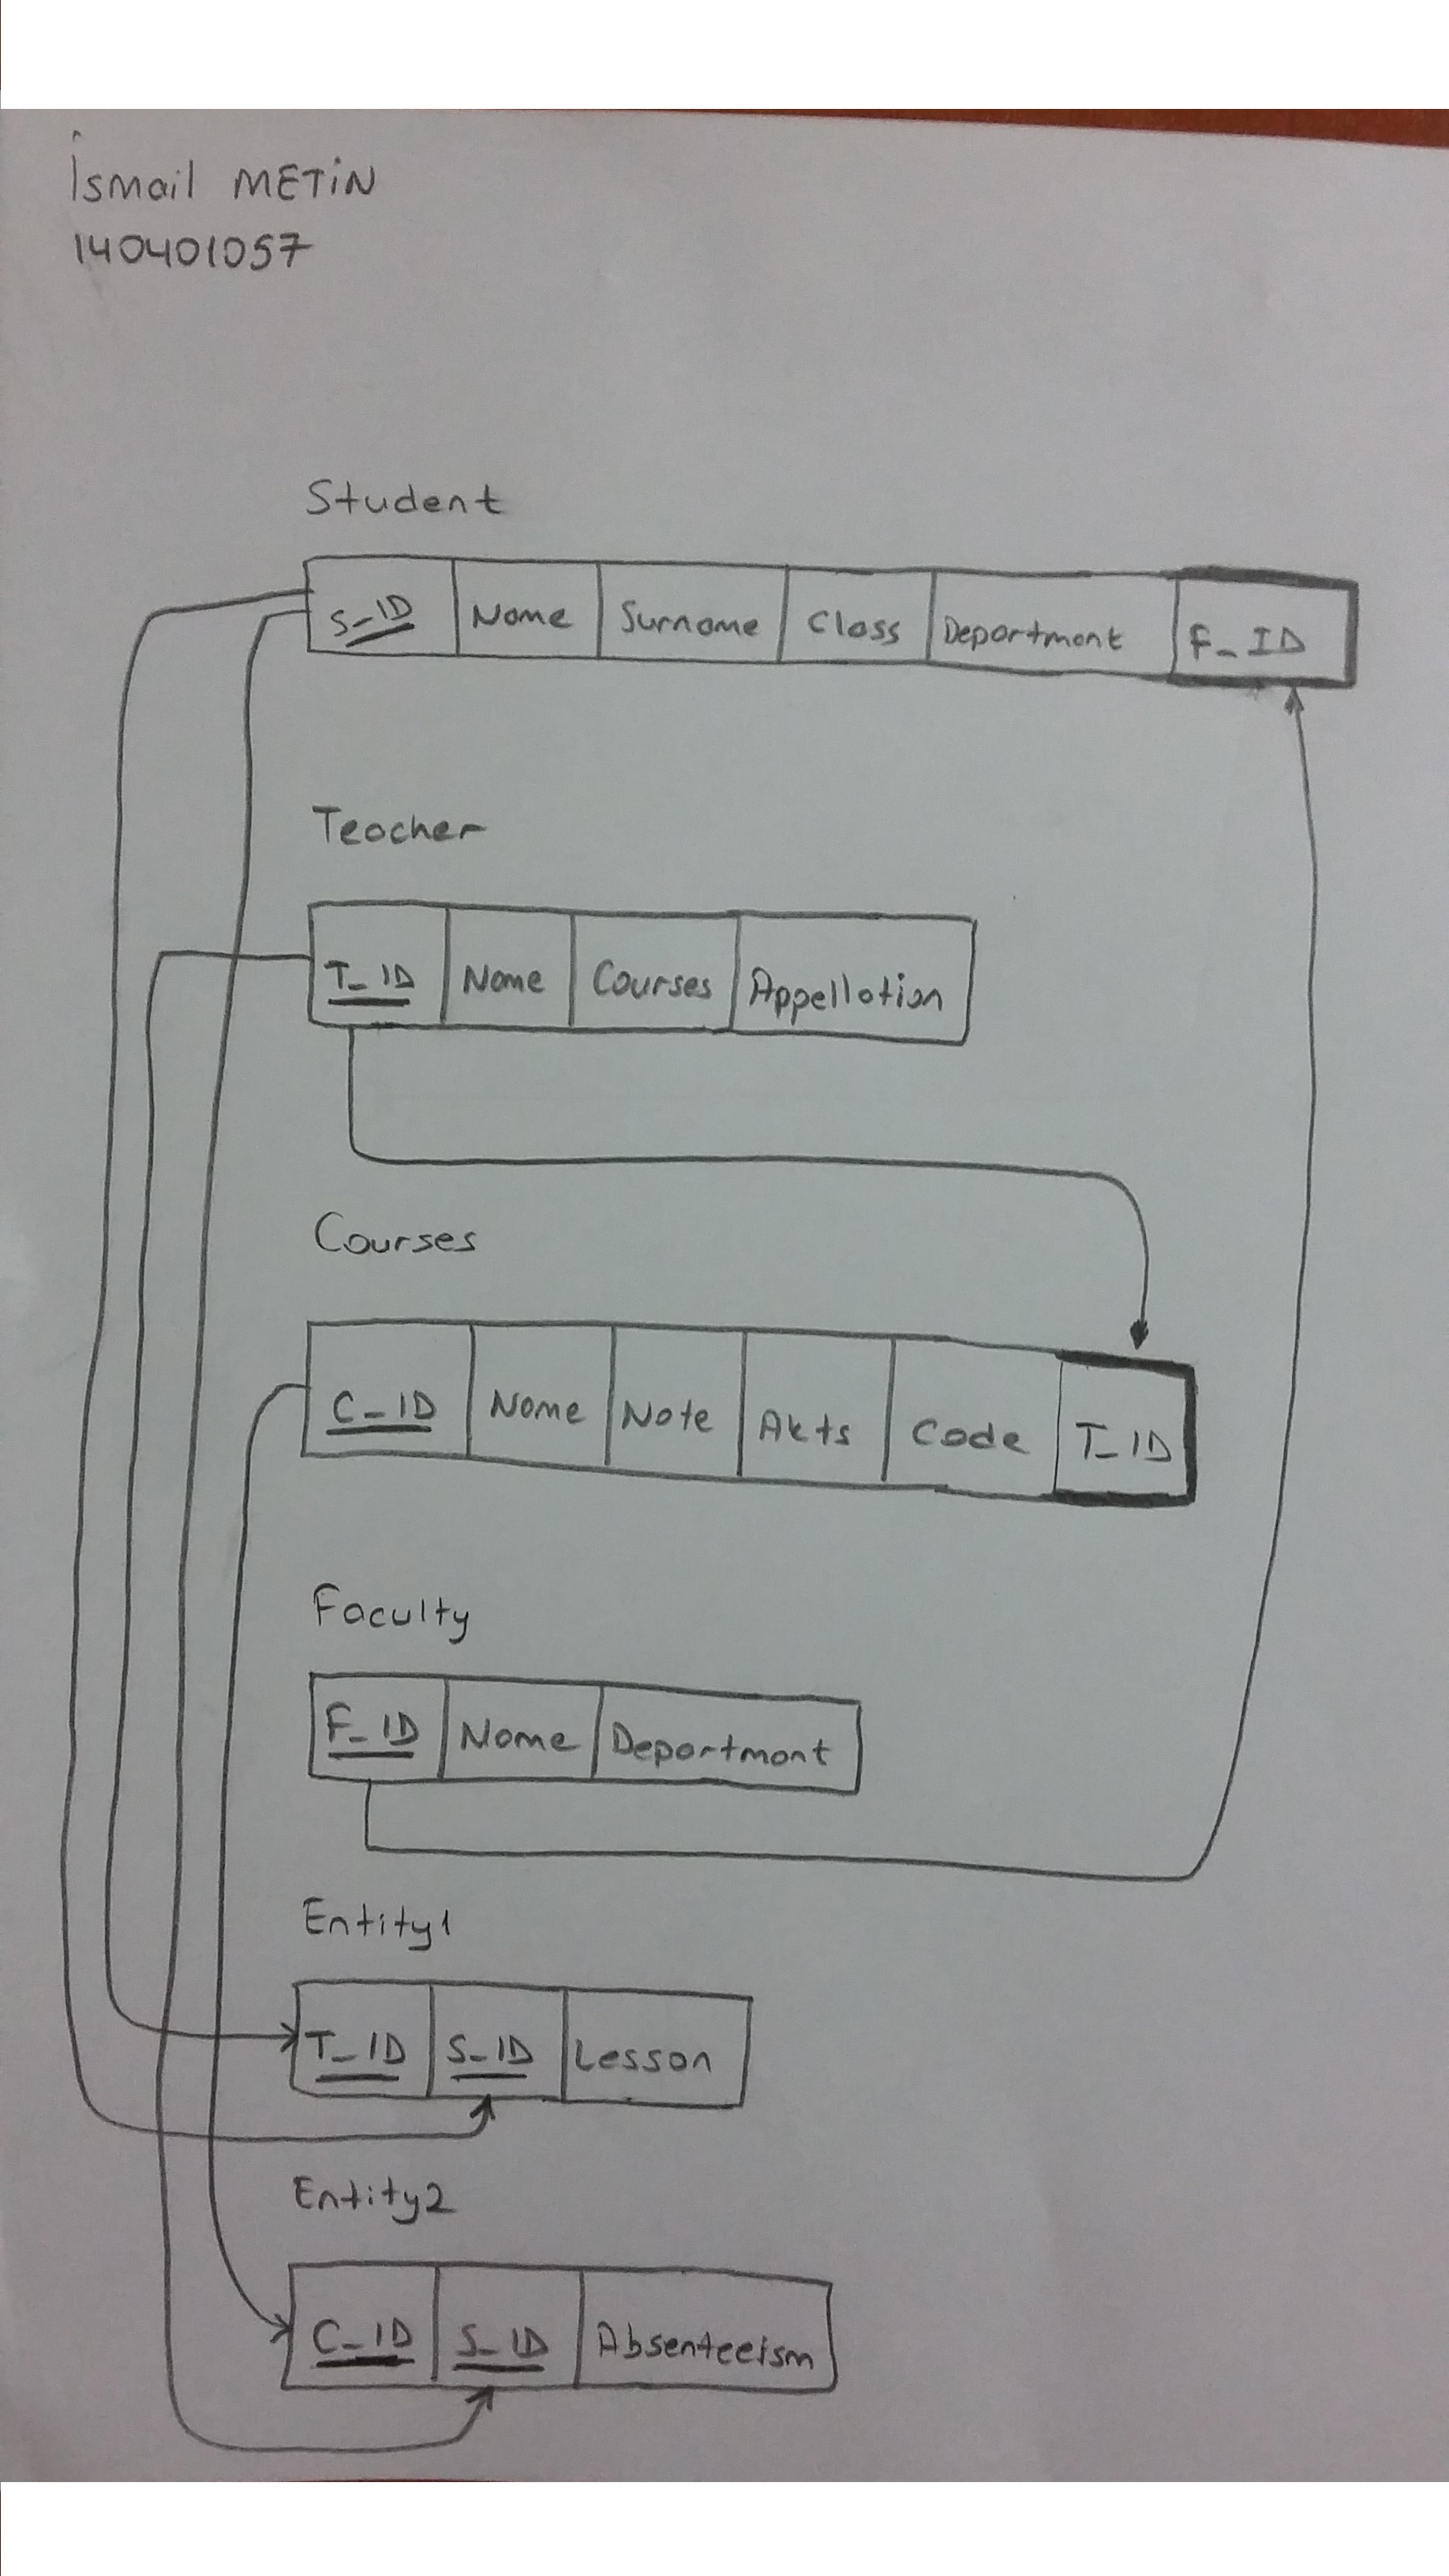 İsmail METİN
140401057
Student
S_ID Name Surname Class Department F_ID
Teacher
T_ID Name Courses Appellation
Courses
C_ID Name Note Akts Code T_ID
Faculty
F_ID Name Department
Entity1
T_ID S_ID Lesson
Entity2
C_ID S_ID Absenteeism